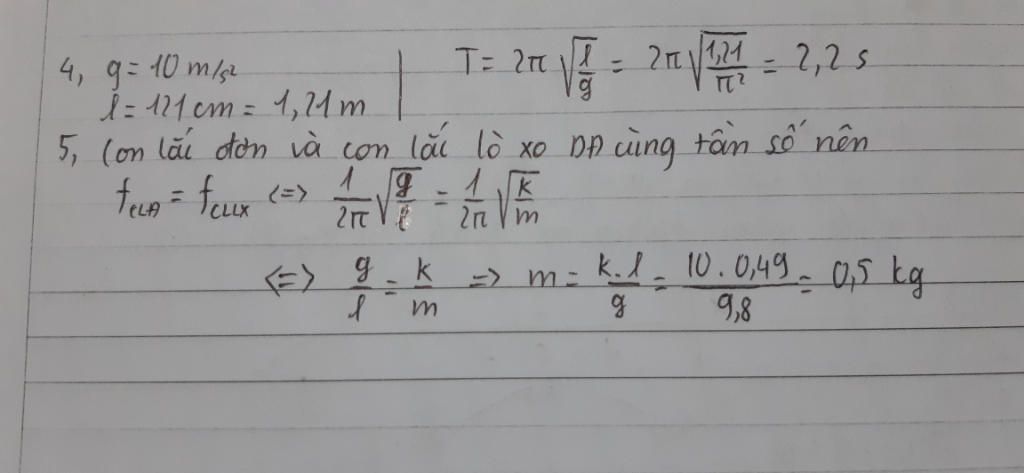 4, g = 10 m/s² | T = 2π √(l/g) = 2π √(1,21/π²) = 2,2 s
l = 121 cm = 1,21 m
5, Con lắc đơn và con lắc lò xo DĐ cùng tần số nên
fCLĐ = fCLLX <=> 1/2π √(g/l) = 1/2π √(k/m)
<=> g/l = k/m => m = k.l/g = 10 . 0,49/9,8 = 0,5 kg